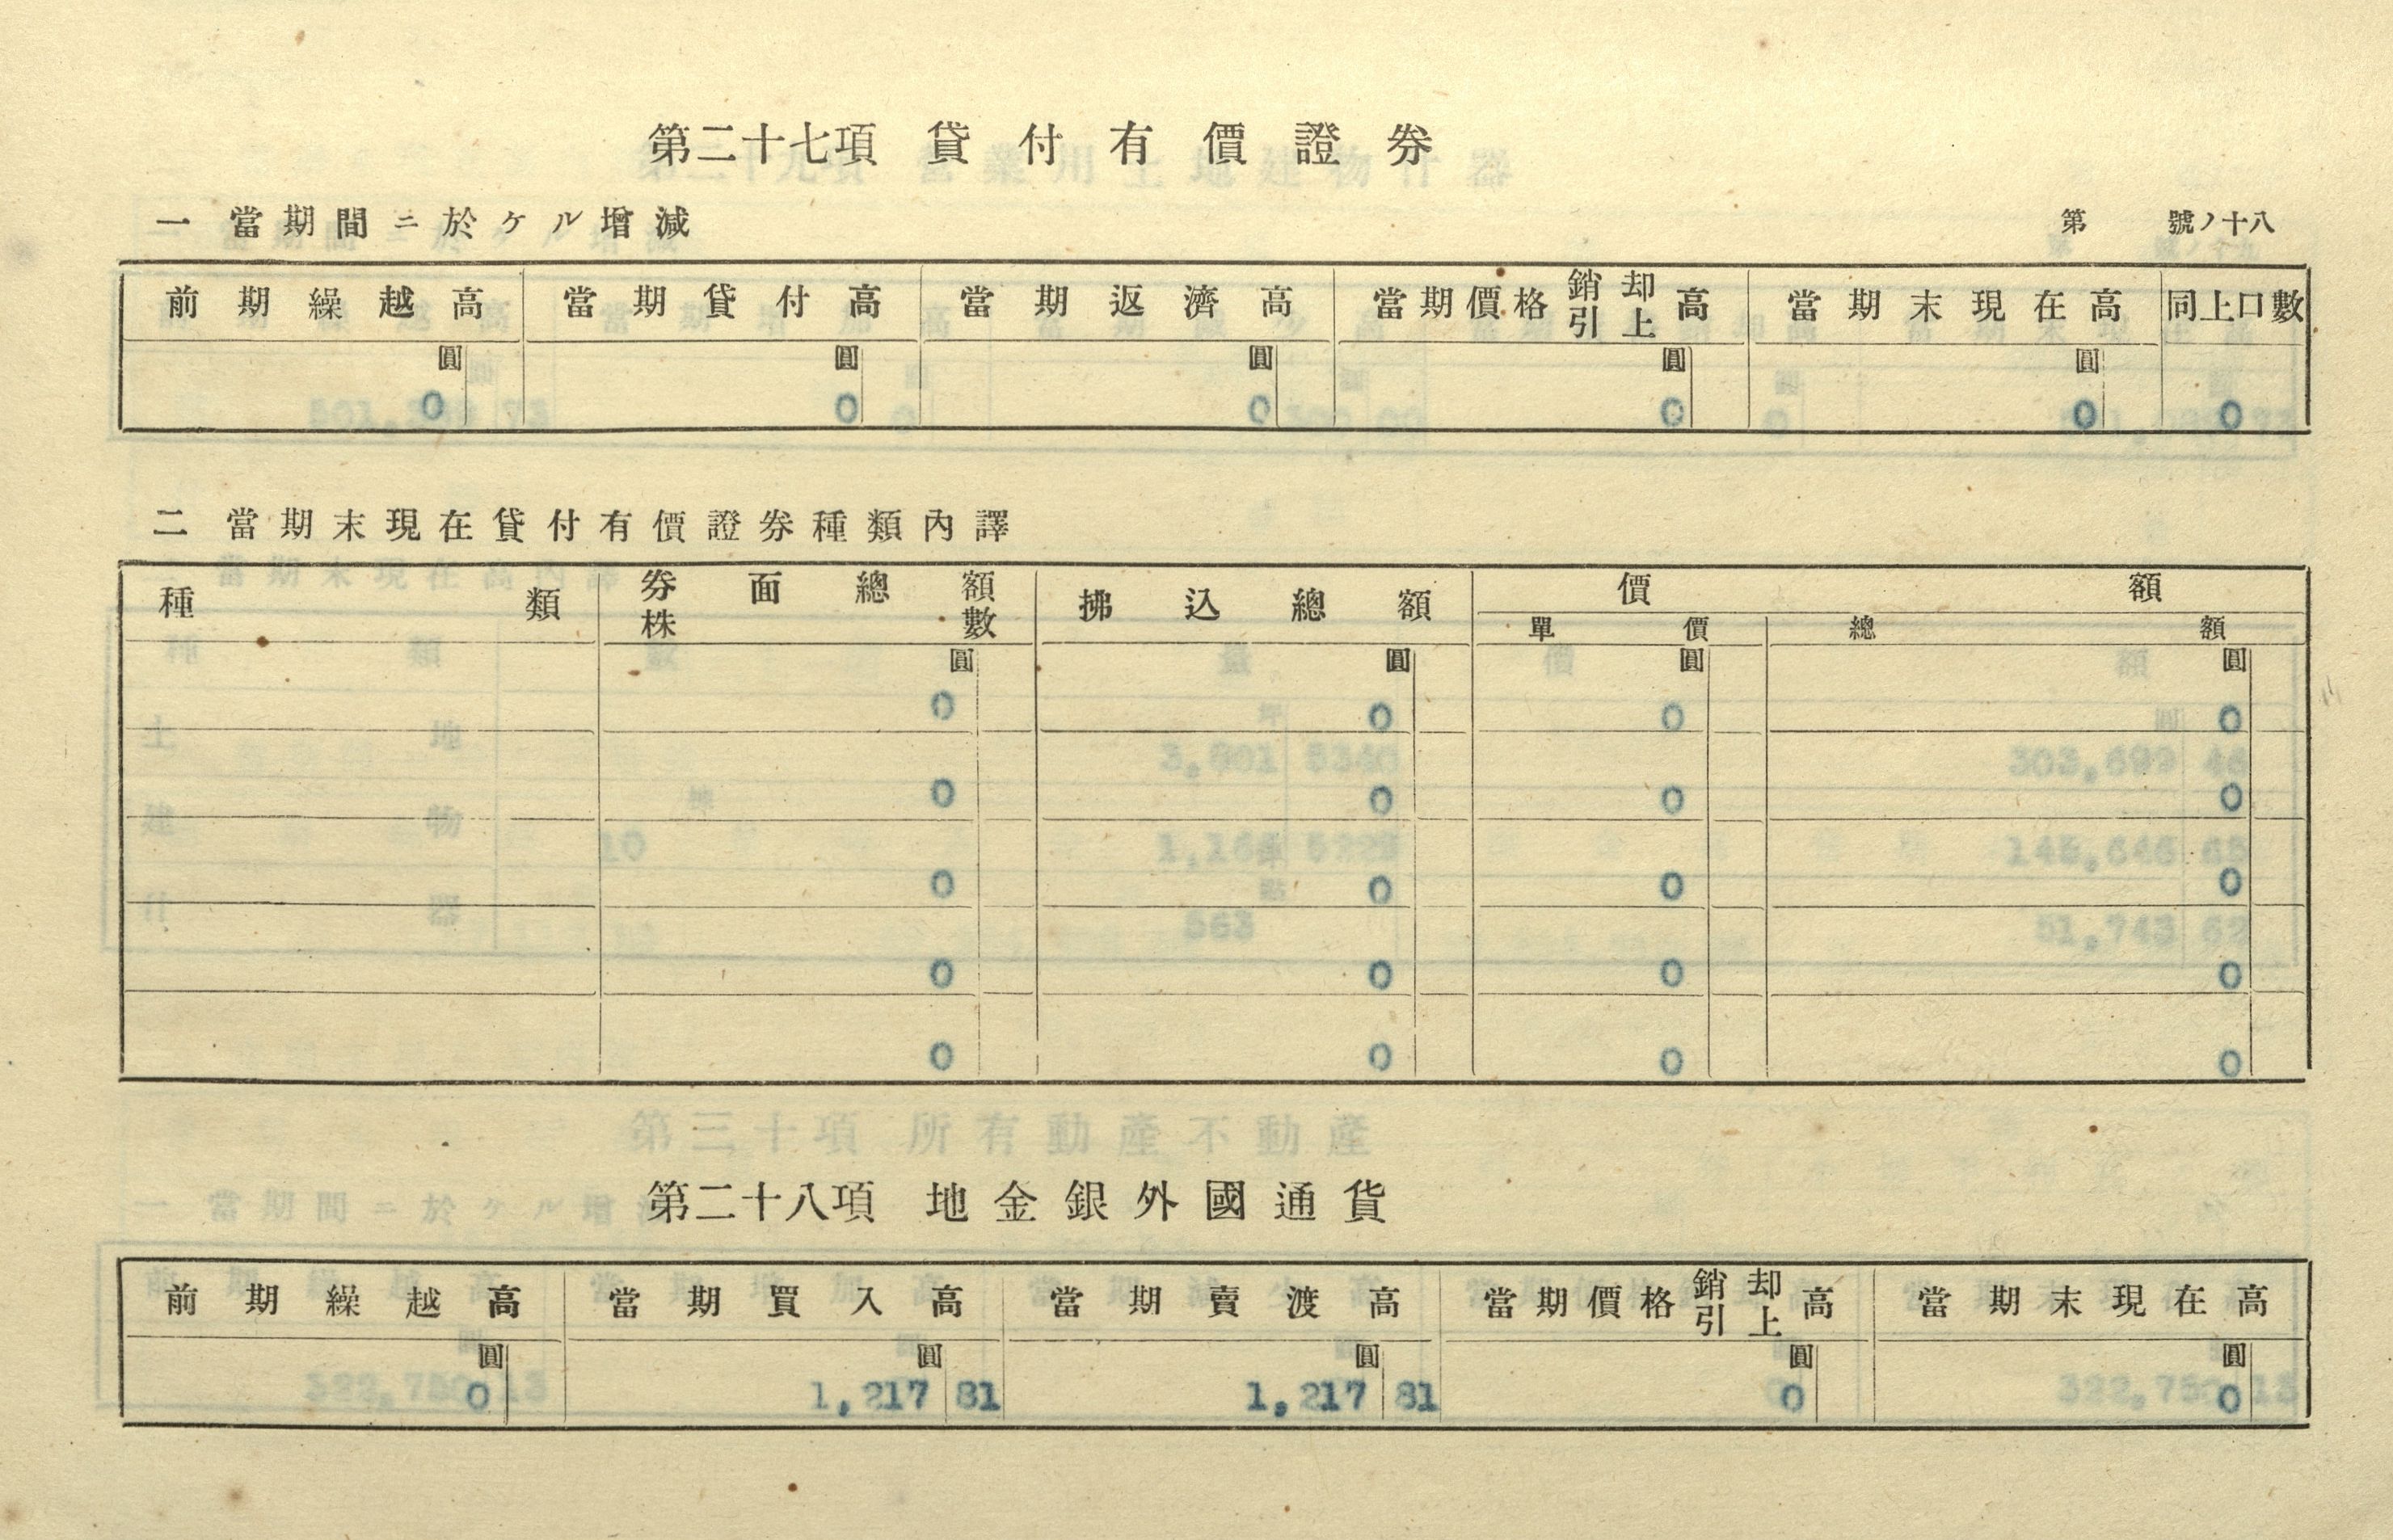 第二十七項 貸付有價證券
一 當期間ニ於ケル增減 第 號ノ十八
前期繰越高 當期貸付高 當期返濟高 當期價格銷却引上高 當期末現在高 同上口數
圓 圓 圓 圓 圓
0 0 0 0 0 0
二 當期末現在貸付有價證券種類內譯
種類 券面總額株數 拂込總額 價額
單價 總額
圓 圓 圓 圓
0 0 0 0
0 0 0 0
0 0 0 0
0 0 0 0
0 0 0 0
第二十八項 地金銀外國通貨
前期繰越高 當期買入高 當期賣渡高 當期價格銷却引上高 當期末現在高
圓 圓 圓 圓 圓
0 1,217 81 1,217 81 0 0